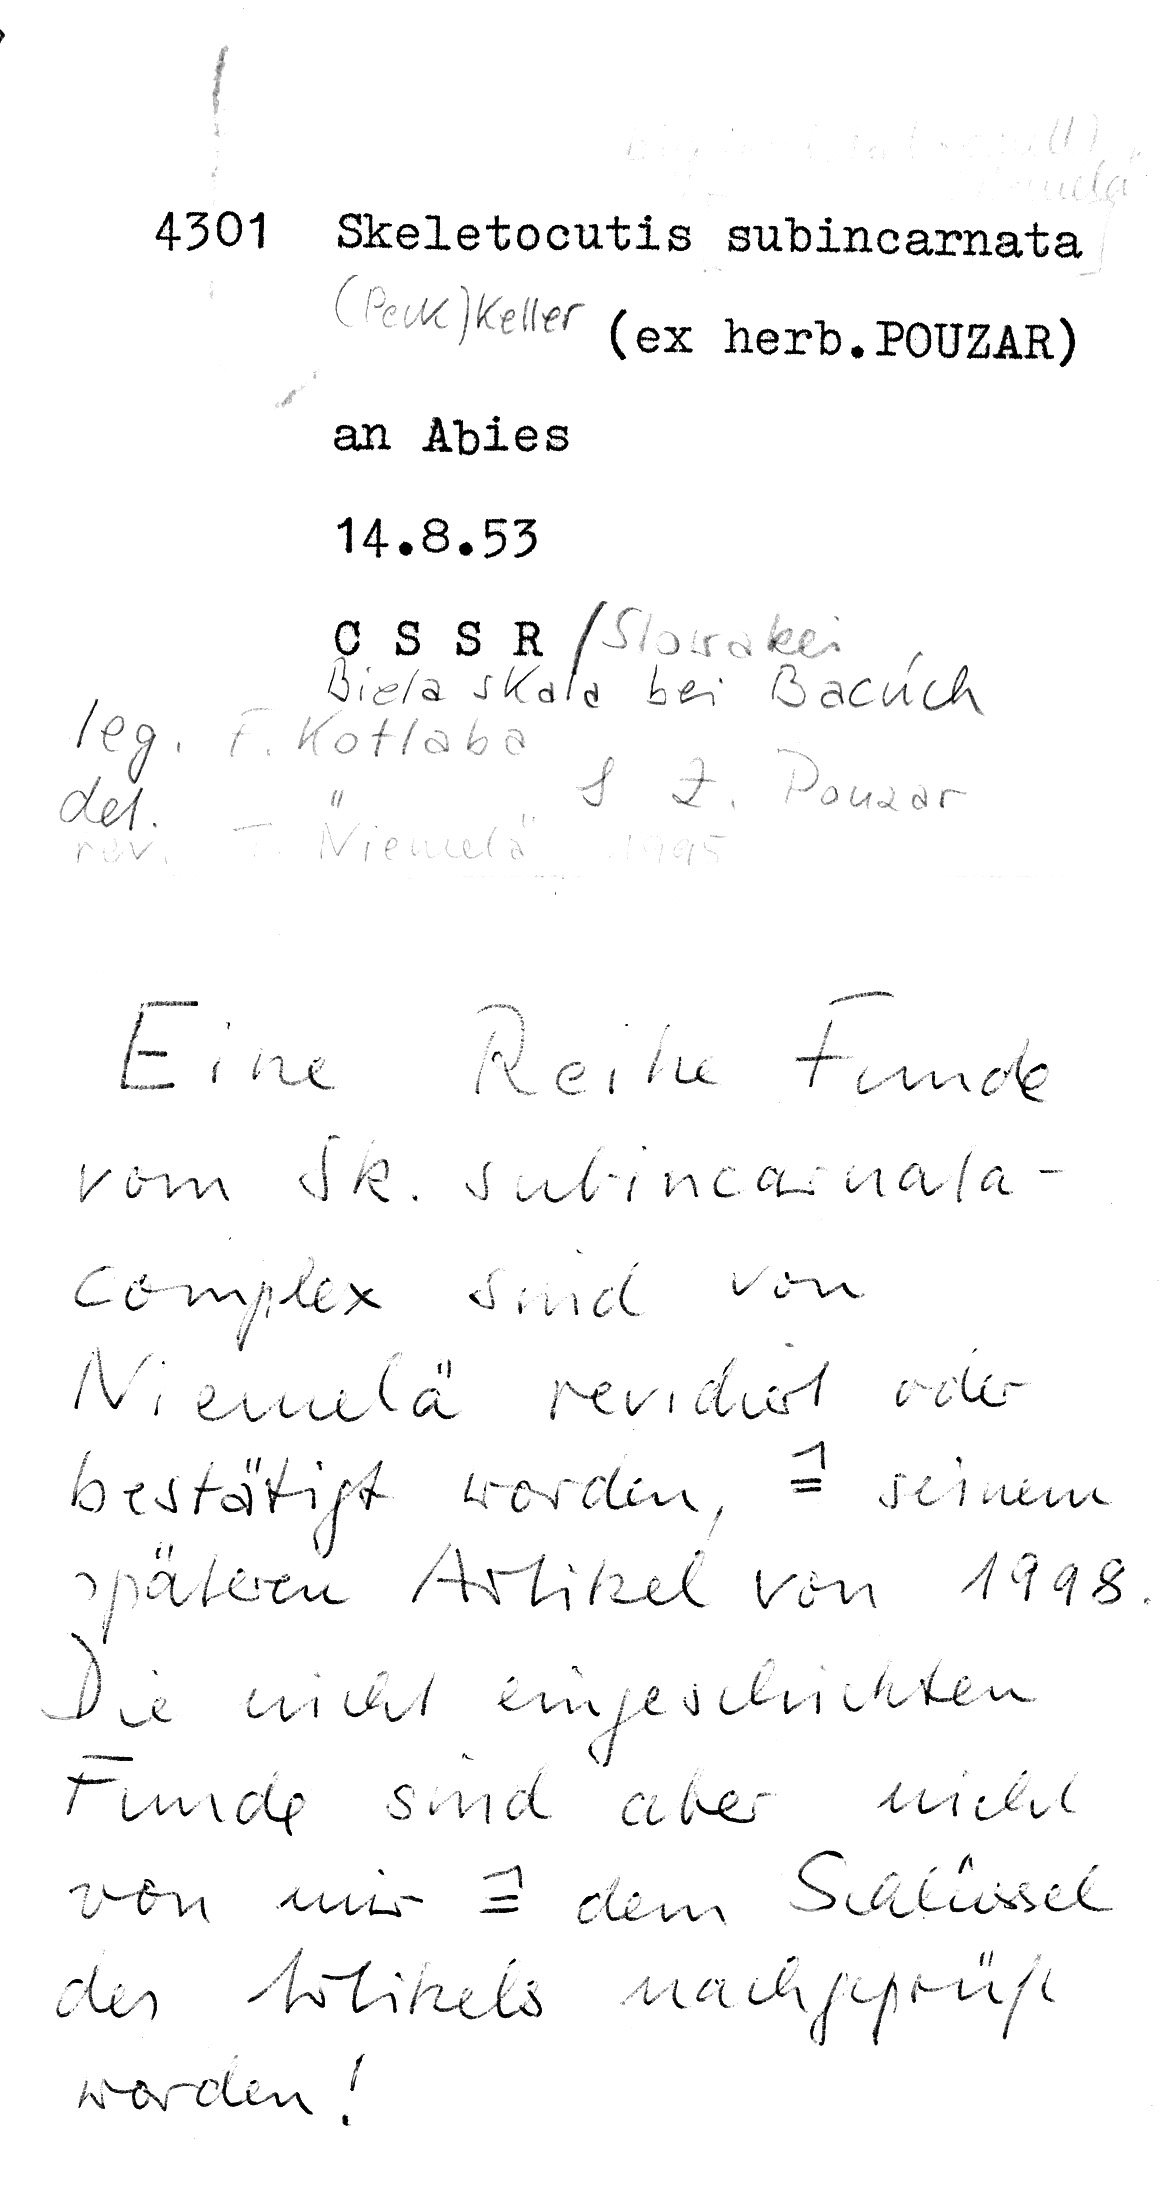 Niemelä
4301 Skeletocutis subincarnata
(Peck) Keller (ex herb.POUZAR)
an Abies
14.8.53
C S S R / Slowakei
Biela skala bei Bacúch
leg. F. Kotlaba
& Z. Pouzar
det. "
rev. T. Niemelä 1995
Eine Reihe Funde
vom Sk. subincarnata-
complex sind von
Niemelä revidiert oder
bestätigt worden, ≙ seinem
späteren Artikel von 1998.
Die nicht eingeschickten
Funde sind aber nicht
von mir ≙ dem Schlüssel
des Artikels nachgeprüft
worden!